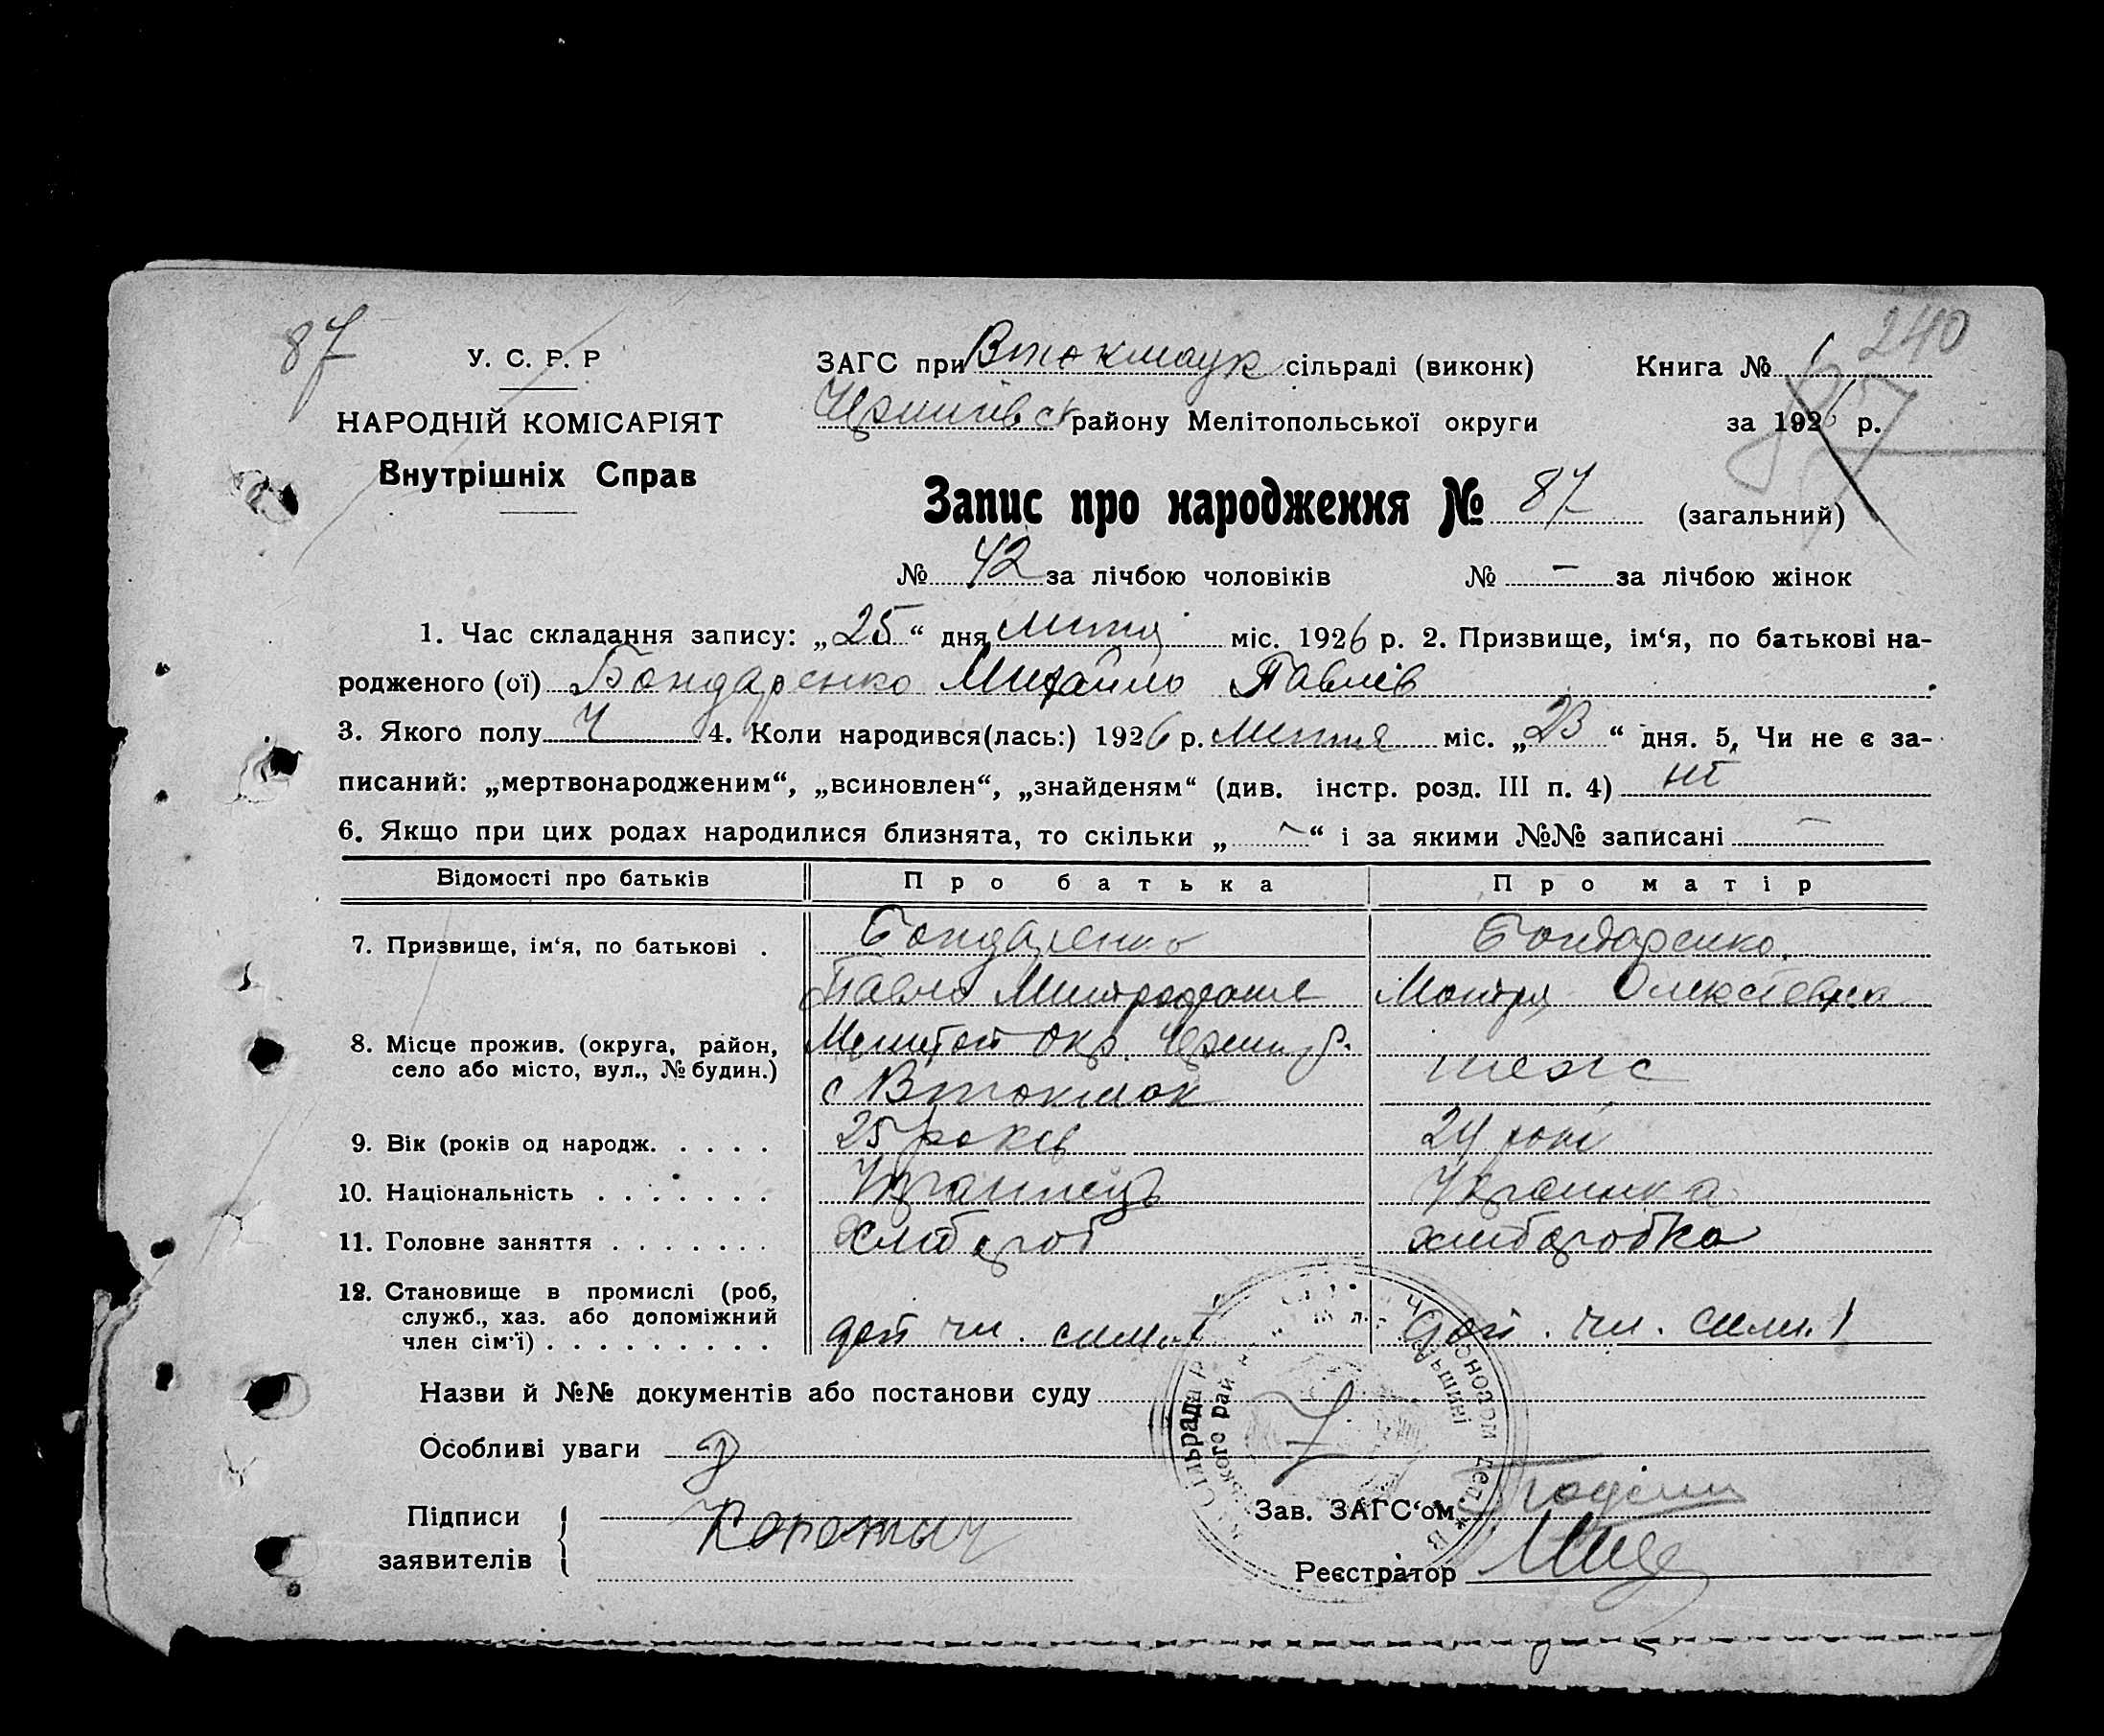 87
240
У. С. Р. Р
ЗАГС при Втокмацк сільраді (виконк)
Книга № 1
НАРОДНІЙ КОМІСАРІЯТ
Чернигівськ району Мелітопольської округи
за 1926 р.
87
Внутрішніх Справ
Запис про народження № 87 (загальний)
№ 42 за лічбою чоловіків № — за лічбою жінок
1. Час складання запису: „25“ дня липня міс. 1926 р. 2. Призвище, ім‘я, по батькові на-
родженого (ої) Бондаренко Михайло Павлів
3. Якого полу Ч 4. Коли народився(лась:) 1926 р. липня міс. „23“ дня. 5, Чи не є за-
писаний: „мертвонародженим“, „всиновлен“, „знайденям“ (див. інстр. розд. III п. 4) ні
6. Якщо при цих родах народилися близнята, то скільки „—“ і за якими №№ записані —
Відомості про батьків Про батька Про матір
7. Призвище, ім‘я, по батькові . Бондаренко Бондаренко
Павло Митрофанів Мотря Олексіевна
8. Місце прожив. (округа, район, Мелітоп окр. Черниг р. теж
село або місто, вул., № будин.) с Втокмак
9. Вік (років од народж. . . . . 25 років 24 років
10. Національність . . . . . . . Українець Українка
11. Головне заняття . . . . . . . хлібороб хліборобка
12. Становище в промислі (роб,
служб., хаз. або допоміжний
член сім‘ї) . . . . . . . . . доп чл. сим. 1 доп. чл. сим. 1
Назви й №№ документів або постанови суду
Особливі уваги
Підписи
заявителів
Зав. ЗАГС‘ом
Реєстратор